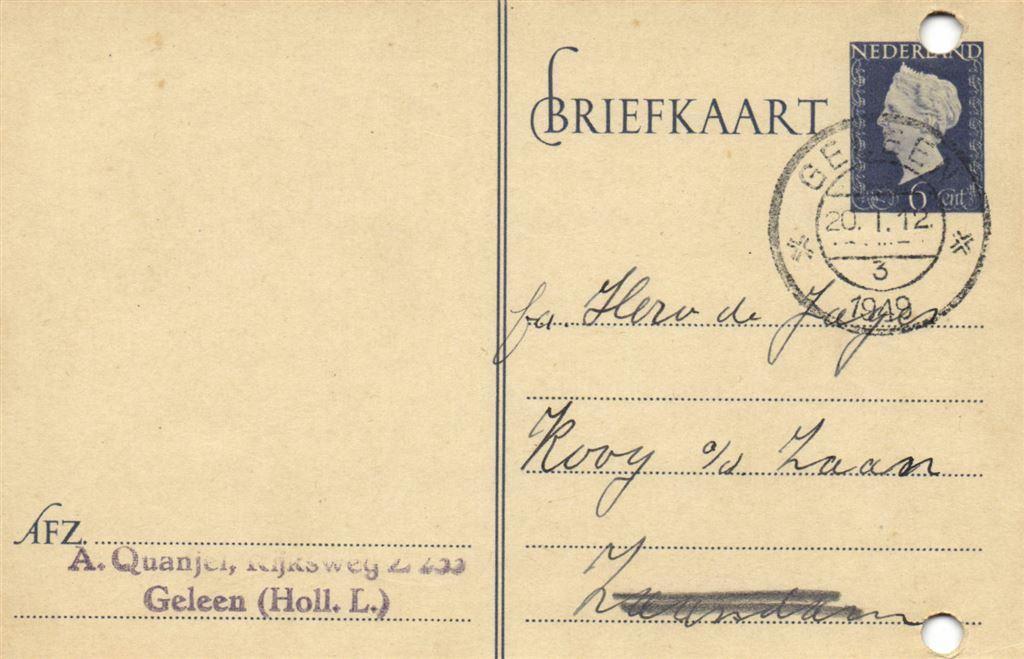 NEDERLAND
BRIEFKAART
6 Cent
GELEEN
20.1.12.
3
1949
fa. Hero de Jager
Kooy a/d. Zaan
Zaandam
AFZ.
A. Quanjel, Rijksweg Z. 233
Geleen (Holl. L.)